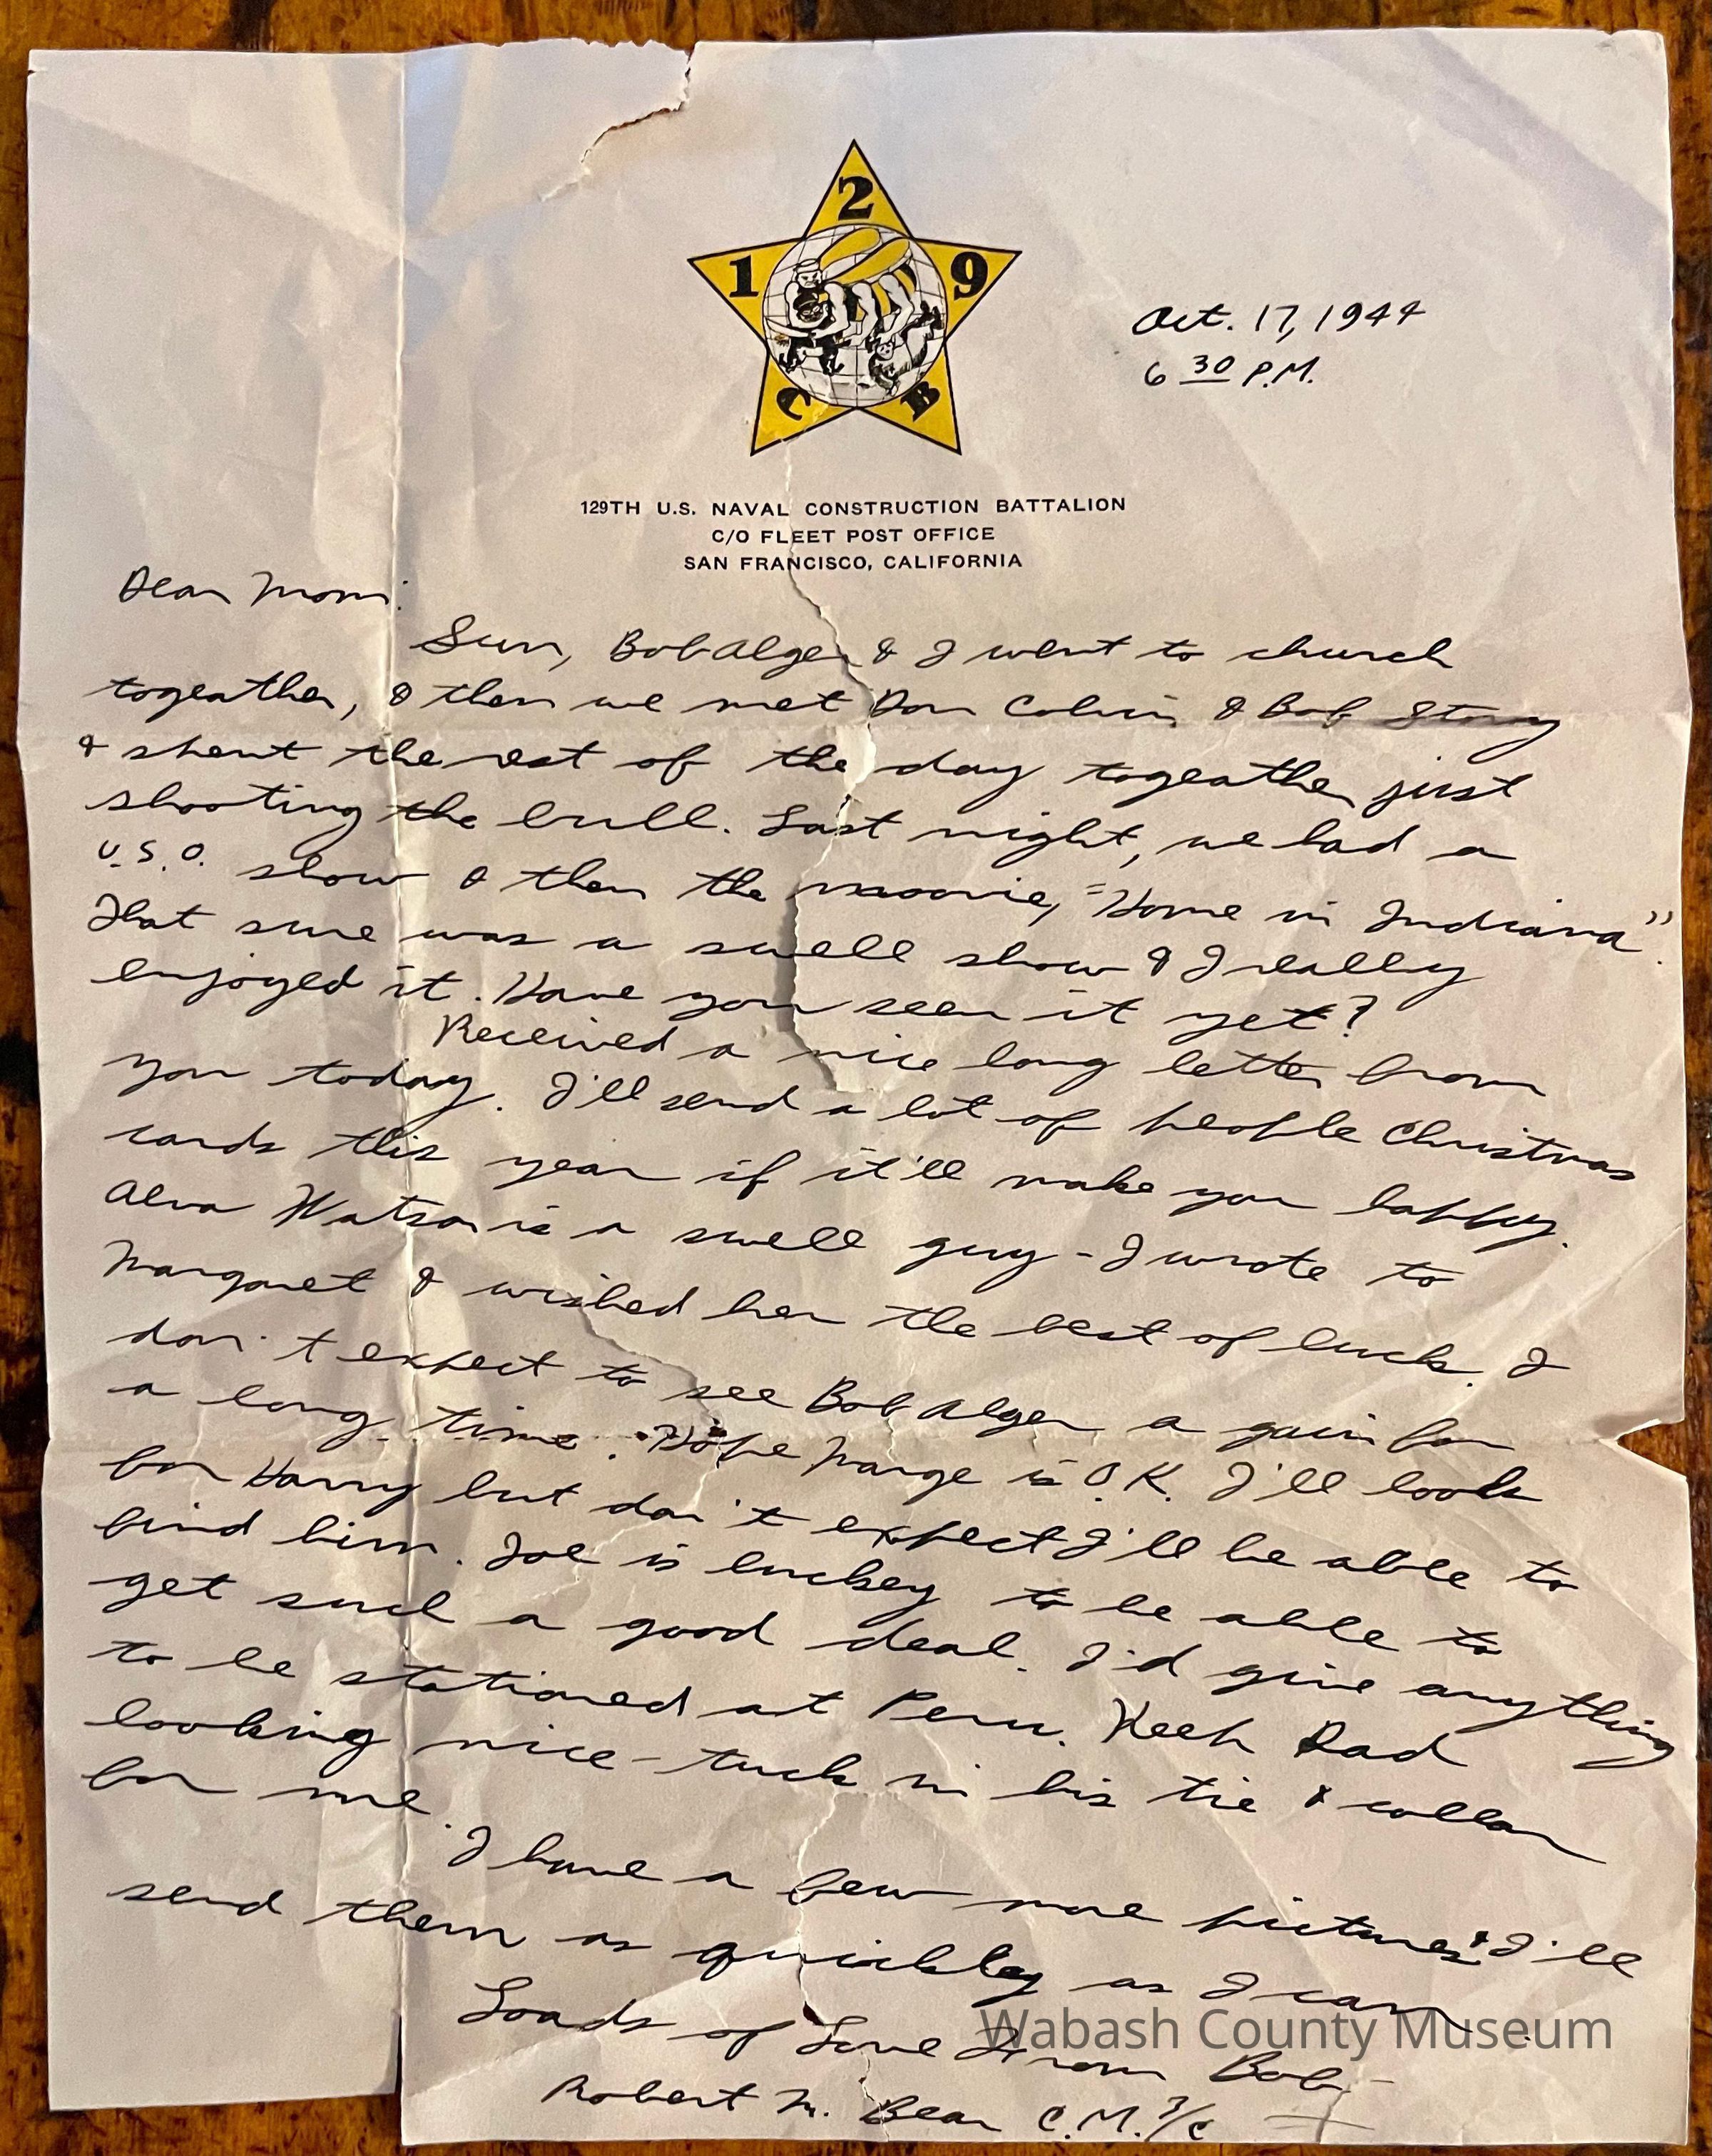 2
1 9
C B
Oct. 17, 1944
6 30 P.M.
129TH U.S. NAVAL CONSTRUCTION BATTALION
C/O FLEET POST OFFICE
SAN FRANCISCO, CALIFORNIA
Dear Mom:
Sun, Bob Alger & I went to church
togeather, & then we met Don Colvin & Bob Story
& spent the rest of the day togeather just
shooting the bull. Last night, we had a
U.S.O. show & then the moovie, "Home in Indiana".
That sure was a swell show & I really
enjoyed it. Have you seen it yet?
Received a nice long letter from
you today. I'll send a lot of people Christmas
cards this year if it'll make you happy.
Alva Watson is a swell guy - I wrote to
Margaret & wished her the best of luck. I
don't expect to see Bob Alger a gain for
a long time. Hope Marge is O.K. I'll look
for Harry but don't expect I'll be able to
find him. Joe is luckey to be able to
get such a good deal. I'd give anything
to be stationed at Peru. Keep Dad
looking nice - tuck in his tie & collar
for me.
I have a few more pictures & I'll
send them as quickley as I can
Loads of Love From Bob
Robert M. Bear C.M. 3/c
Wabash County Museum